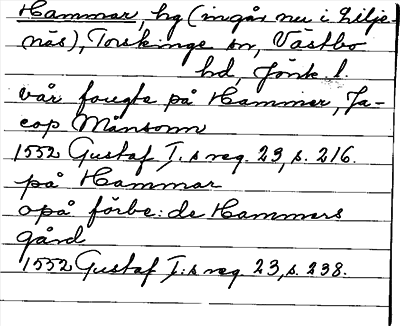 Hammar, hg (ingår nu i Lilje-
näs), Torskinge sn, Västbo
hd, Jönk. l.
vår fougte på Hammer, Ja-
cop Månsonn
1552 Gustaf I. s reg. 23, s. 216.
på Hammar
opå förbe: de Hammers
gård
1552 Gustaf I:s reg. 23, s. 238.